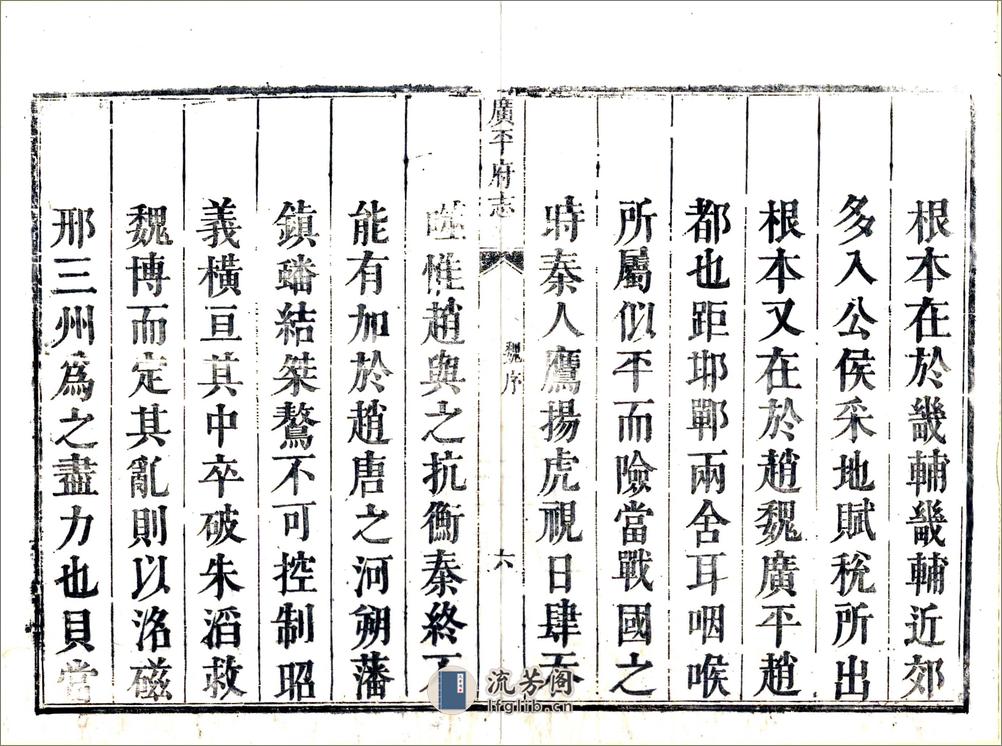 根本在於畿輔畿輔近郊
多入公侯采地賦稅所出
根本又在於趙魏廣平趙
都也距邯鄲兩舍耳咽喉
所屬似平而險當戰國之
時秦人鷹揚虎視日肆吞
噬惟趙與之抗衡秦終不
廣平府志
魏序
六
能有加於趙唐之河朔藩
鎮蟠結桀驁不可控制昭
義橫亘其中卒破朱滔救
魏博而定其亂則以洺磁
邢三州為之盡力也具嘗
流芳阁
lfglib.cn